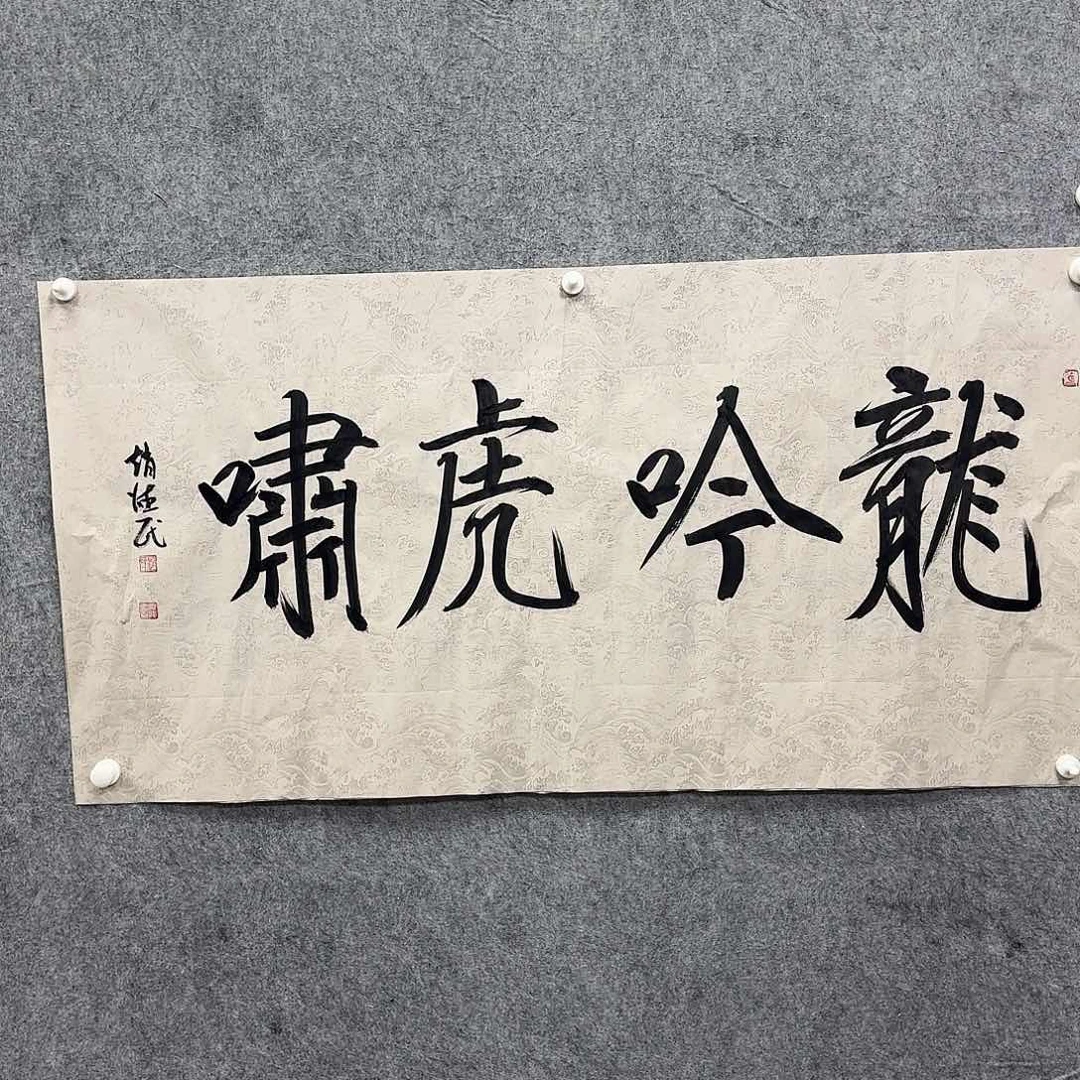 龍吟虎嘯